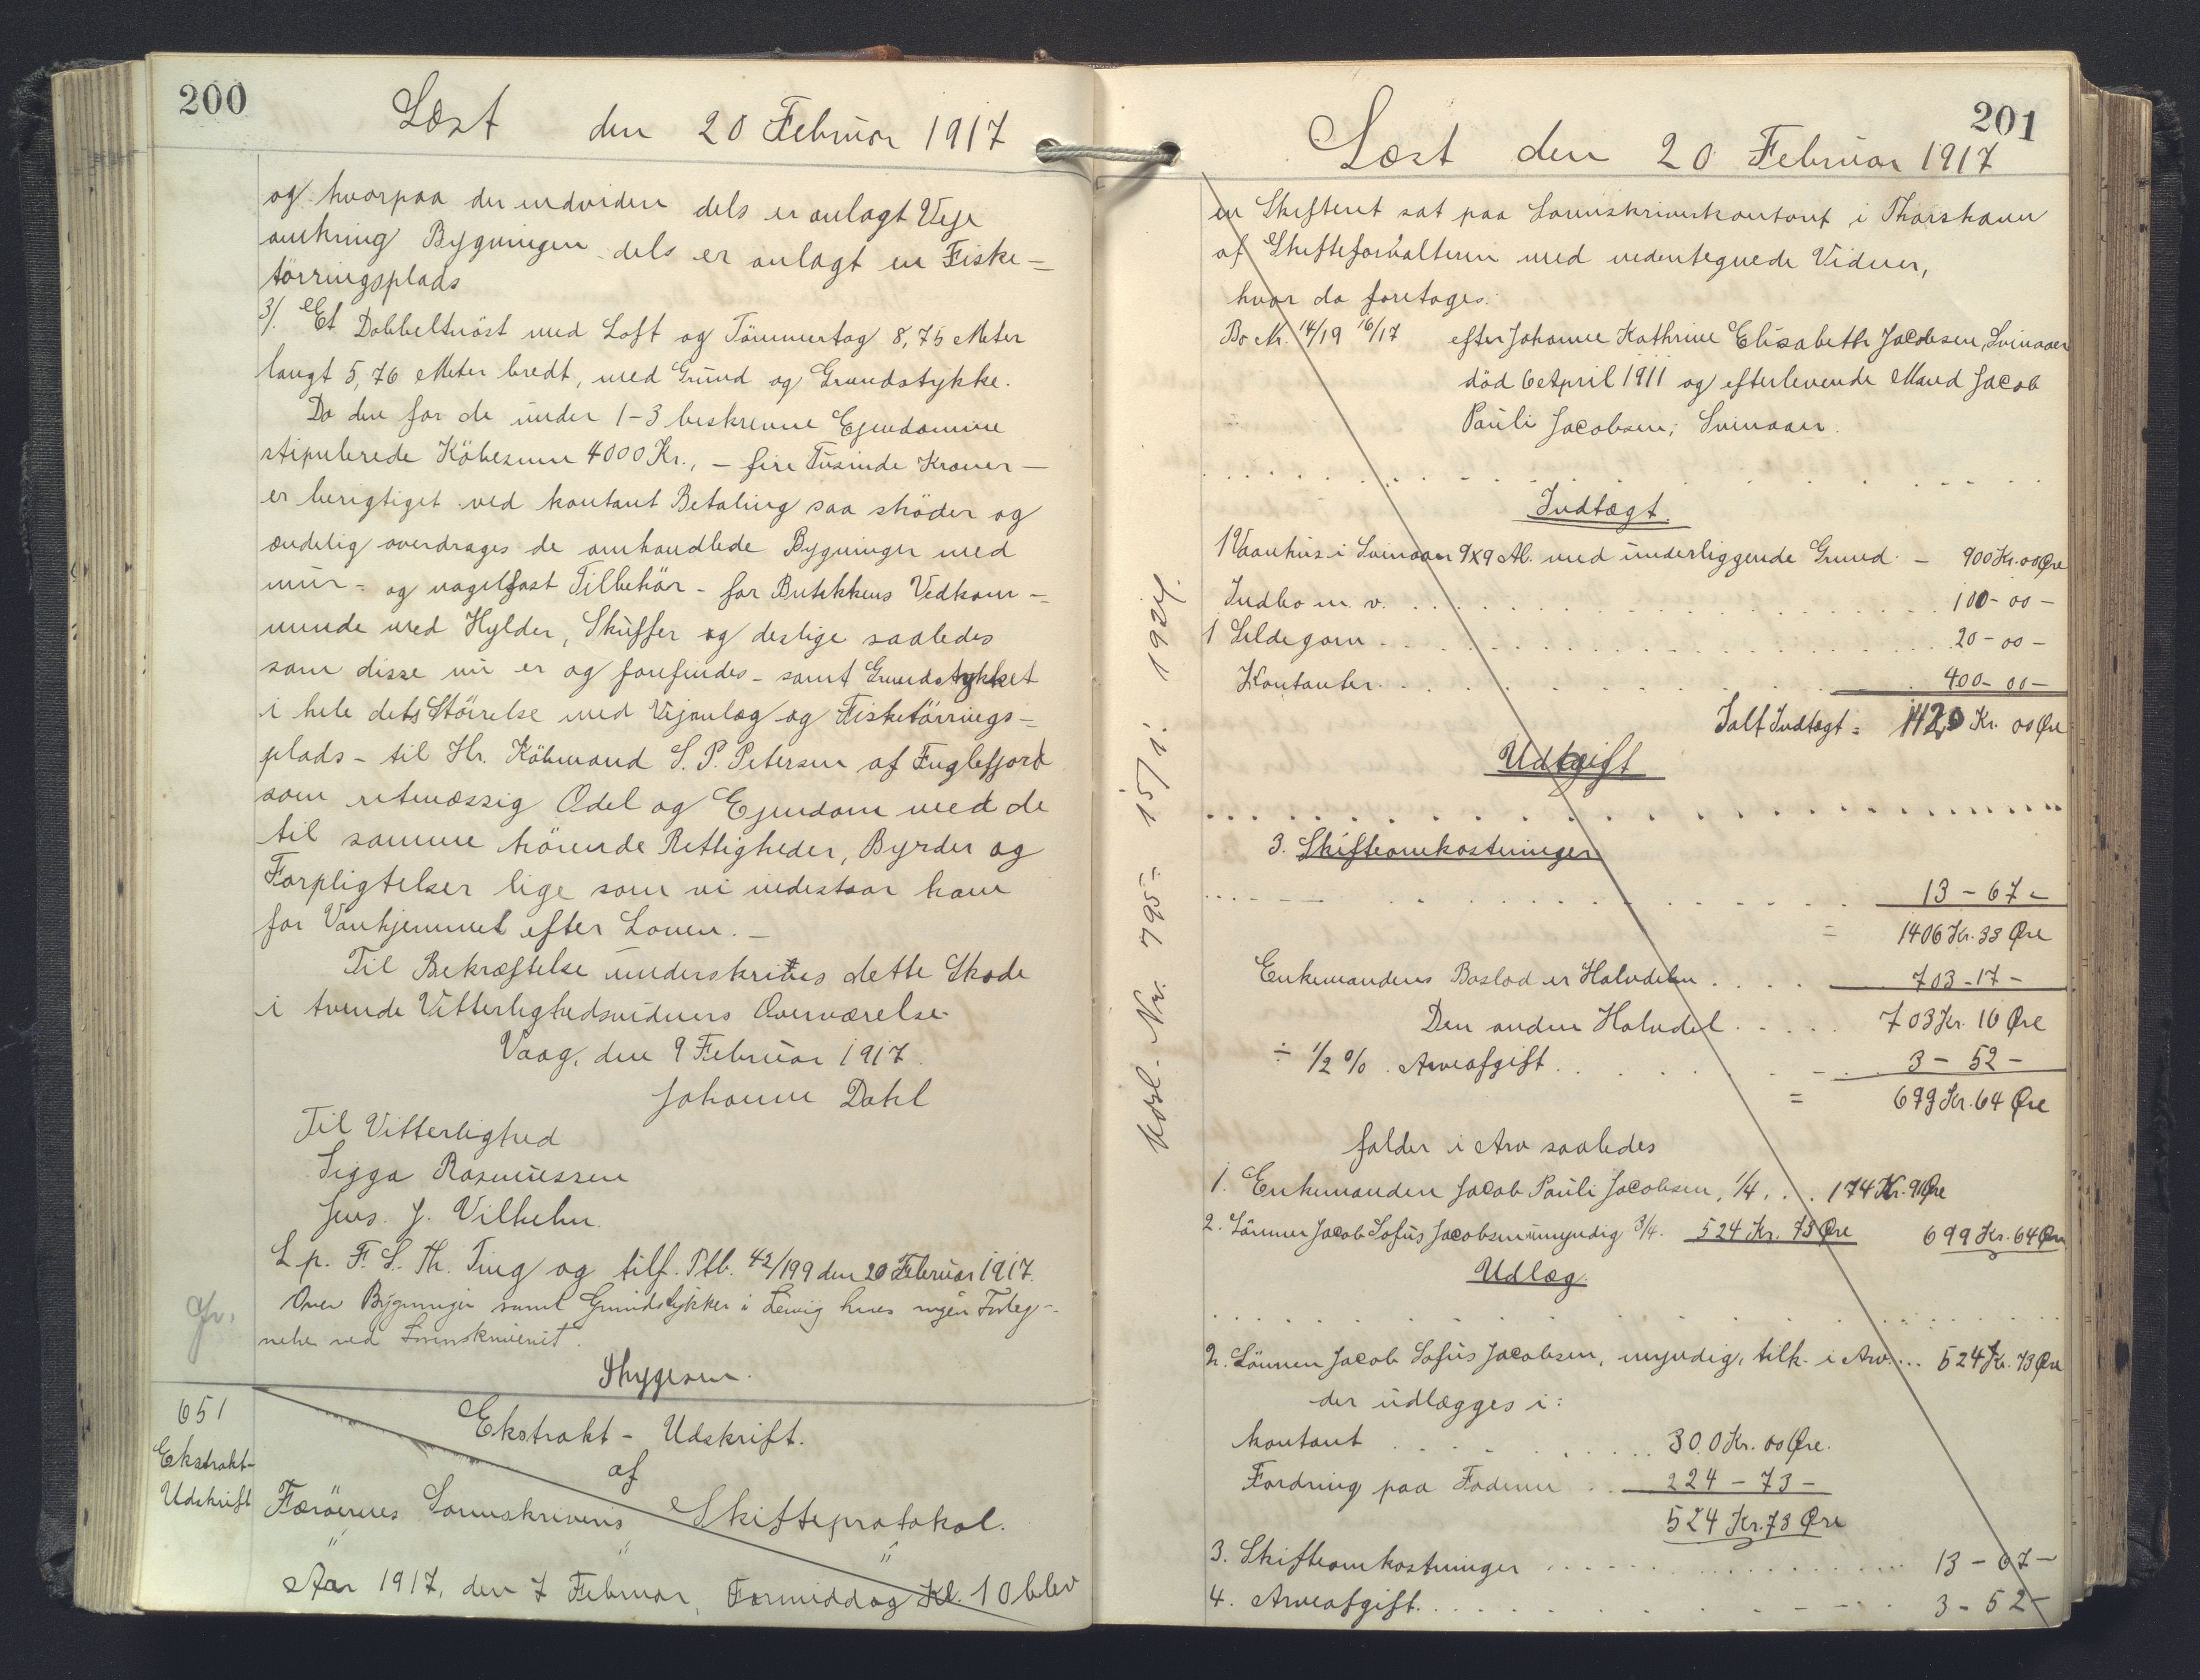 200
Læst den 20 Februar 1917
og hvorpaa der endvidere dels er anlagt Veje
omkring Bygningen dels er anlagt en Fiske-
törringsplads
3/. Et Dobbeltnöst med Loft og Tömmertag 8,75 Meter
langt 5,76 Meter bredt, med Grund og Grundstykke.
Da den for de under 1-3 beskrevne Ejendomme
stipulerede Köbesum 4000 Kr., - fire Tusinde Kroner -
er berigtiget ved kontant Betaling saa sköder og
endelig overdrages de omhandlede Bygninger med
mur- og nagelfast Tilbehör - for Butikkens Vedkom-
mende med Hylder, Skuffer og deslige saaledes
som disse nu er og forefindes - samt Grundstykket
i hele dets Störrelse med Vejanlæg og Fisketörrings-
plads - til Hr. Köbmand S. P. Petersen af Fuglefjord
som retmæssig Odel og Ejendom med de
til samme hörende Rettigheder, Byrder og
Forpligtelser lige som vi indestaar ham
for Vanhjemmel efter Loven. -
Til Bekræftelse underskrives dette Sköde
i tvende Vitterlighedsvidners Overværelse.
Vaag, den 9 Februar 1917.
Johanne Dahl
Til Vitterlighed
Sigga Rasmussen
Jens. J. Vilhelm.
L p. F. S. Th. Ting og tilf. Ptb. 42/199 den 20 Februar 1917.
Over Bygninger samt Grundstykker i haves ingen Forteg-
nelse ved Sorenskriveriet.
Thygesen.
651
Ekstrakt-
Udskrift
Ekstrakt - Udskrift.
af
Færöernes Sorenskriveris Skifteprotokol.
" " "
Aar 1917, den 7 Februar, Formiddag Kl. 10 blev
201
Læst den 20 Februar 1917
en Skifteret sat paa Sorenskriverkontoret i Thorshavn
af Skifteforvalteren med undertegnede Vidner,
hvor da foretoges:
Bo Nr. 14/19 16/17 efter Johanne Kathrine Elisabeth Jacobsen, Svinaaer
död 6 April 1911 og efterlevende Mand Jacob
Pauli Jacobsen, Svinaaer.
Indtægt.
1 Vaanhus i Svinaaer 9x9 Al. med underliggende Grund - 900 Kr. 00 Øre
Indbo m. v. 100 - 00 -
1 Sildegarn 20 - 00 -
Kontanter 400 - 00 -
Ialt Indtægt = 1420 Kr. 00 Øre
Udtgift
3. Skifteomkostninger
13 - 67 -
= 1406 Kr. 33 Øre
Enkemandens Boslod er Halvdelen 703 - 17 -
Den anden Halvdel 703 Kr. 16 Øre
÷ 1/2 % Arveafgift 3 - 52 -
= 699 Kr. 64 Øre
falder i Arv saaledes
1. Enkemanden Jacob Pauli Jacobsen, 1/4 174 Kr. 91 Øre
2. Sönnen Jacob Sofus Jacobsen umyndig 3/4. 524 Kr. 73 Øre 699 Kr. 64 Øre
Udlæg.
2. Sönnen Jacob Sofus Jacobsen, umyndig, tilk. i Arv 524 Kr. 73 Øre
der udlægges i:
kontant 300 Kr. 00 Øre.
Fordring paa Faderen 224 - 73 -
524 Kr. 73 Øre
3. Skifteomkostninger 13 - 67 -
4. Arveafgift. 3 - 52 -
Nr. 795 - 15/1. 1924.